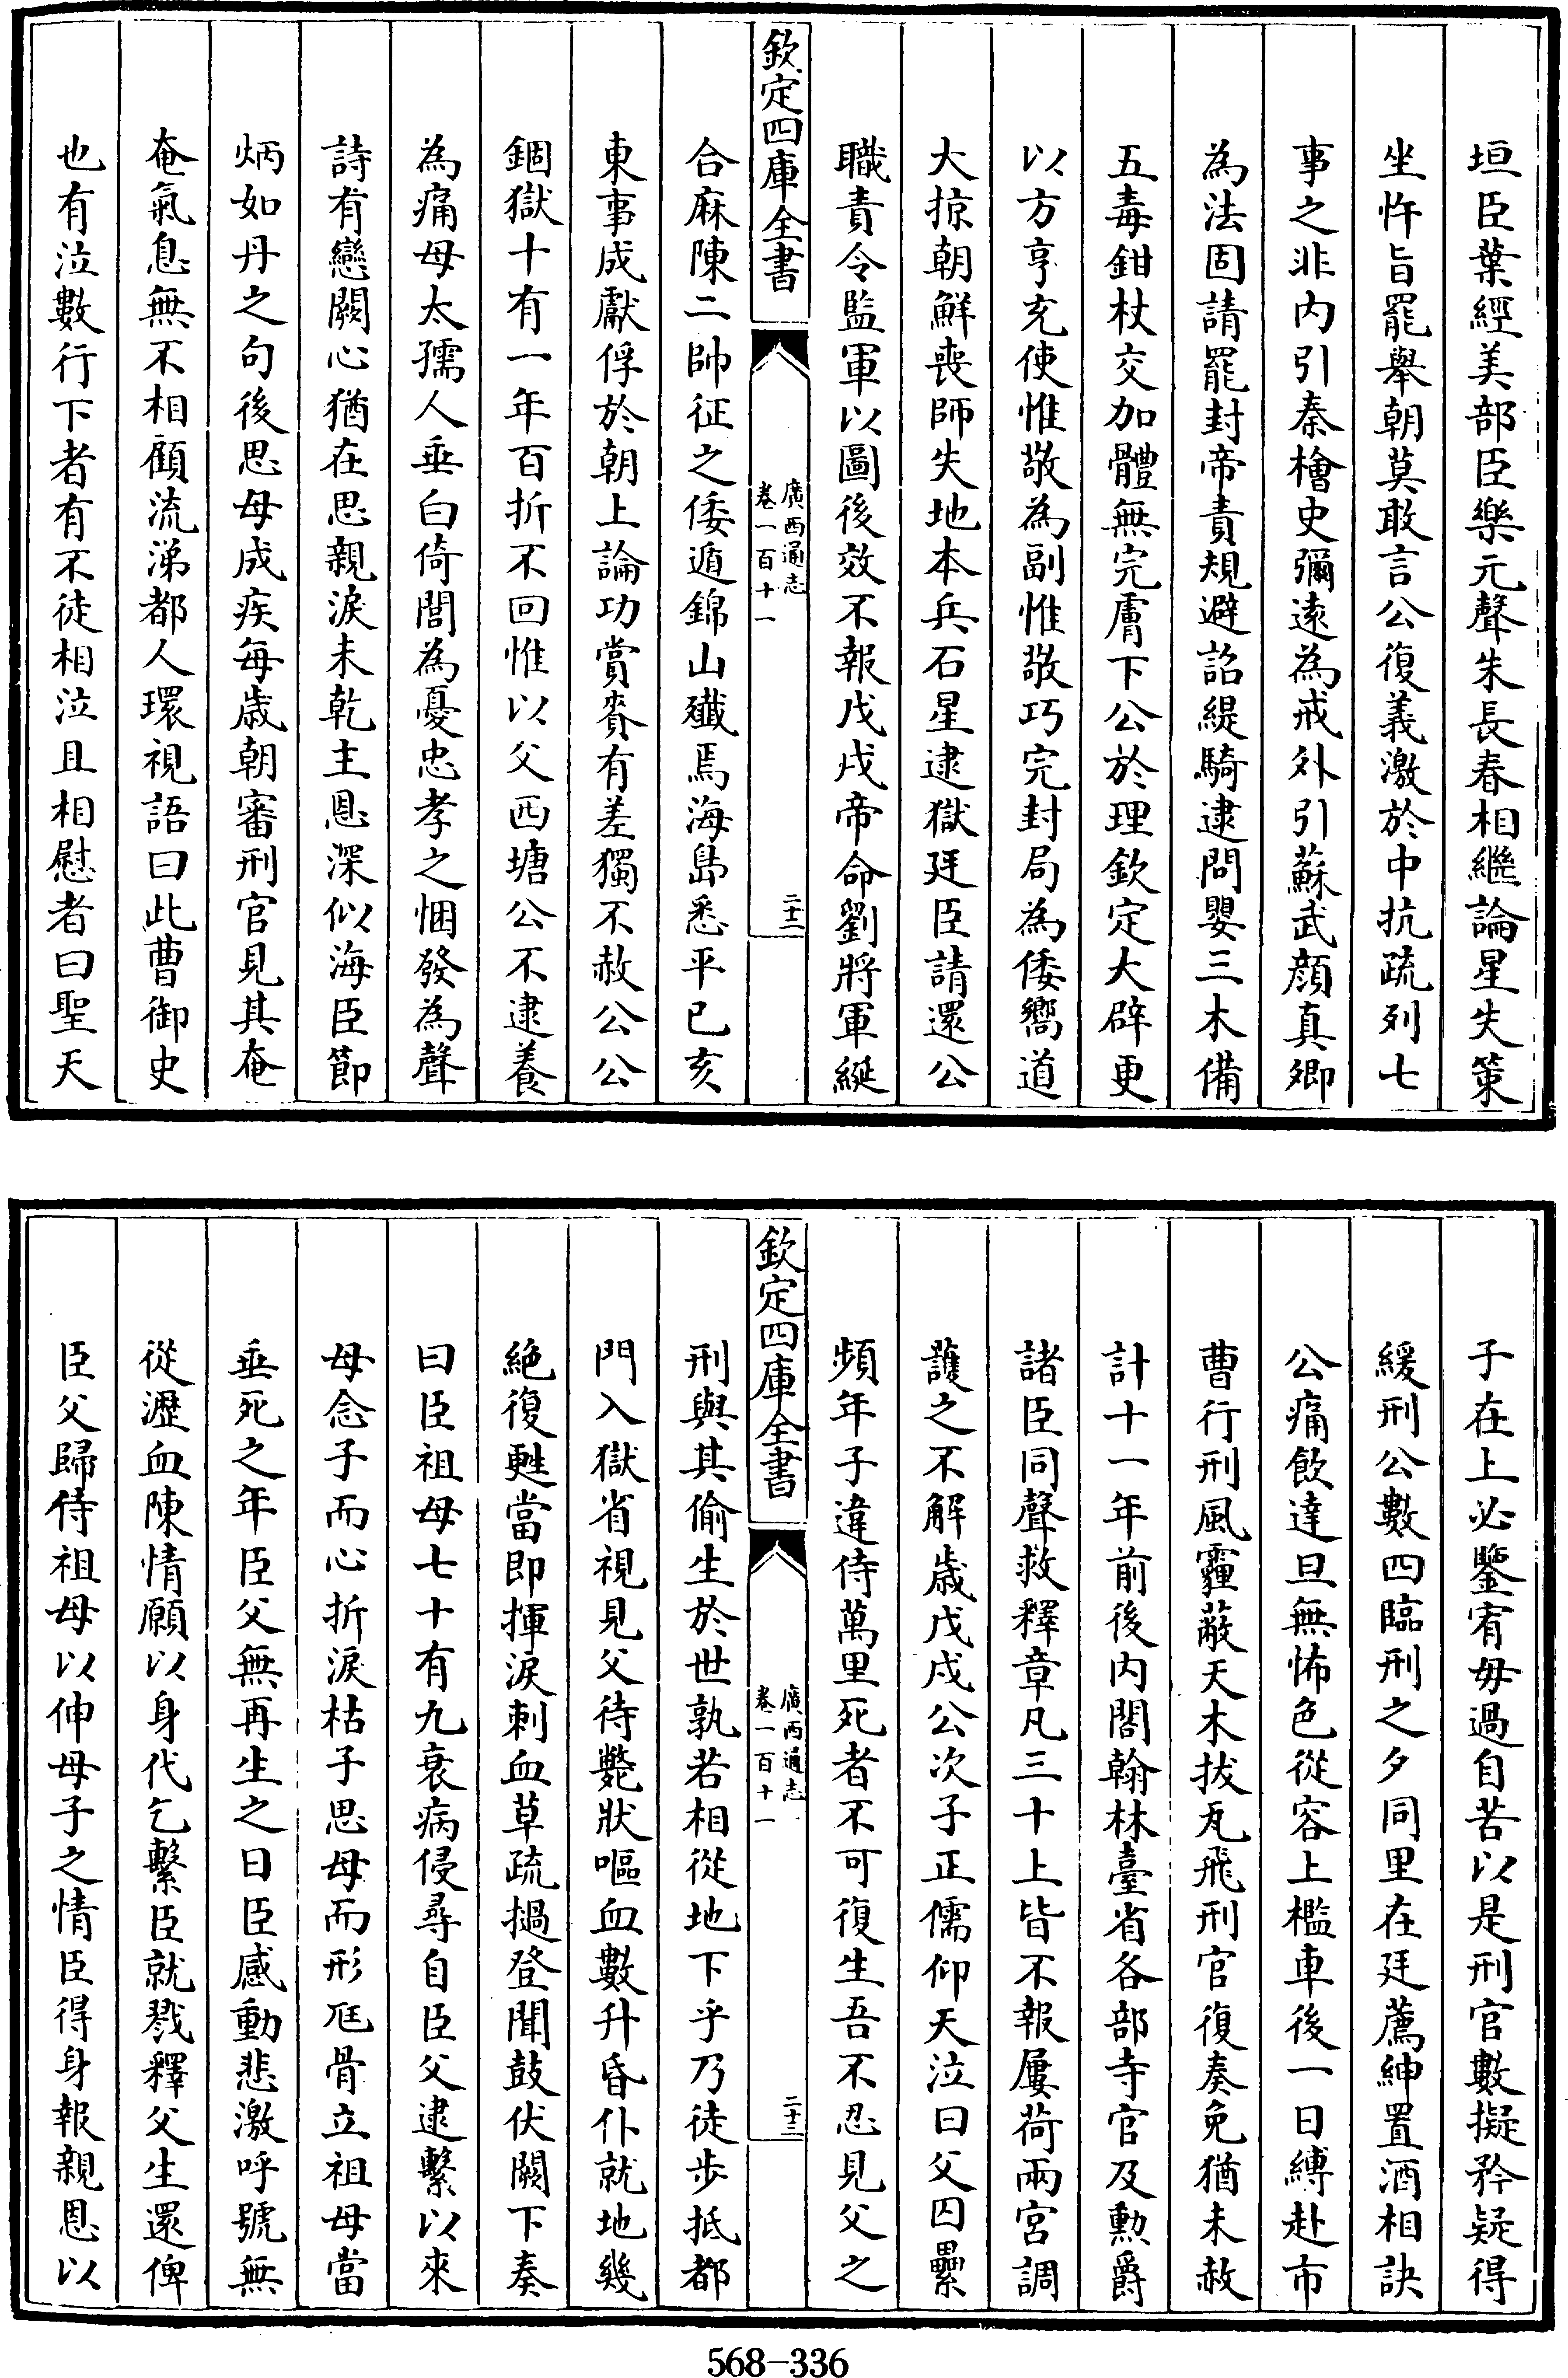 垣臣葉經美部臣樂元聲朱長春相繼論星失策
坐忤旨罷舉朝莫敢言公復義激於中抗疏列七
事之非内引秦檜史彌遠為戒外引蘇武顔真卿
為法固請罷封帝責規避詔緹騎逮問嬰三木備
五毒鉗杖交加體無完膚下公於理欽定大辟更
以方亨充使惟敬為副惟敬巧完封局為倭嚮道
大掠朝鮮喪師失地本兵石星逮獄廷臣請還公
職責令監軍以圖後效不報戊戌帝命劉將軍綎
欽定四庫全書
廣西通志
卷一百十一
二十二
合麻陳二帥征之倭遁錦山殲焉海島悉平已亥
東事成獻俘於朝上論功賞賚有差獨不赦公公
錮獄十有一年百折不回惟以父西塘公不逮養
為痛母太孺人垂白倚閭為憂忠孝之悃發為聲
詩有戀闕心猶在思親淚未乾主恩深似海臣節
炳如丹之句後思母成疾每歲朝審刑官見其奄
奄氣息無不相顧流涕都人環視語曰此曹御史
也有泣數行下者有不徒相泣且相慰者曰聖天
子在上必鑒宥毋過自苦以是刑官數擬矜疑得
緩刑公數四臨刑之夕同里在廷薦紳置酒相訣
公痛飲達旦無怖色從容上檻車後一日縛赴市
曹行刑風霾蔽天木拔瓦飛刑官復奏免猶未赦
計十一年前後内閣翰林臺省各部寺官及勲爵
諸臣同聲救釋章凡三十上皆不報屢荷兩宮調
護之不解歲戊戌公次子正儒仰天泣曰父囚纍
頻年子違侍萬里死者不可復生吾不忍見父之
欽定四庫全書
廣西通志
卷一百十一
二十三
刑與其偷生於世孰若相從地下乎乃徒步抵都
門入獄省視見父待斃狀嘔血數升昏仆就地幾
絶復甦當即揮淚刺血草疏撾登聞鼓伏闕下奏
曰臣祖母七十有九衰病侵尋自臣父逮繫以來
母念子而心折淚枯子思母而形尫骨立祖母當
垂死之年臣父無再生之日臣感動悲激呼號無
從瀝血陳情願以身代乞繫臣就戮釋父生還俾
臣父歸侍祖母以伸母子之情臣得身報親恩以
568-336